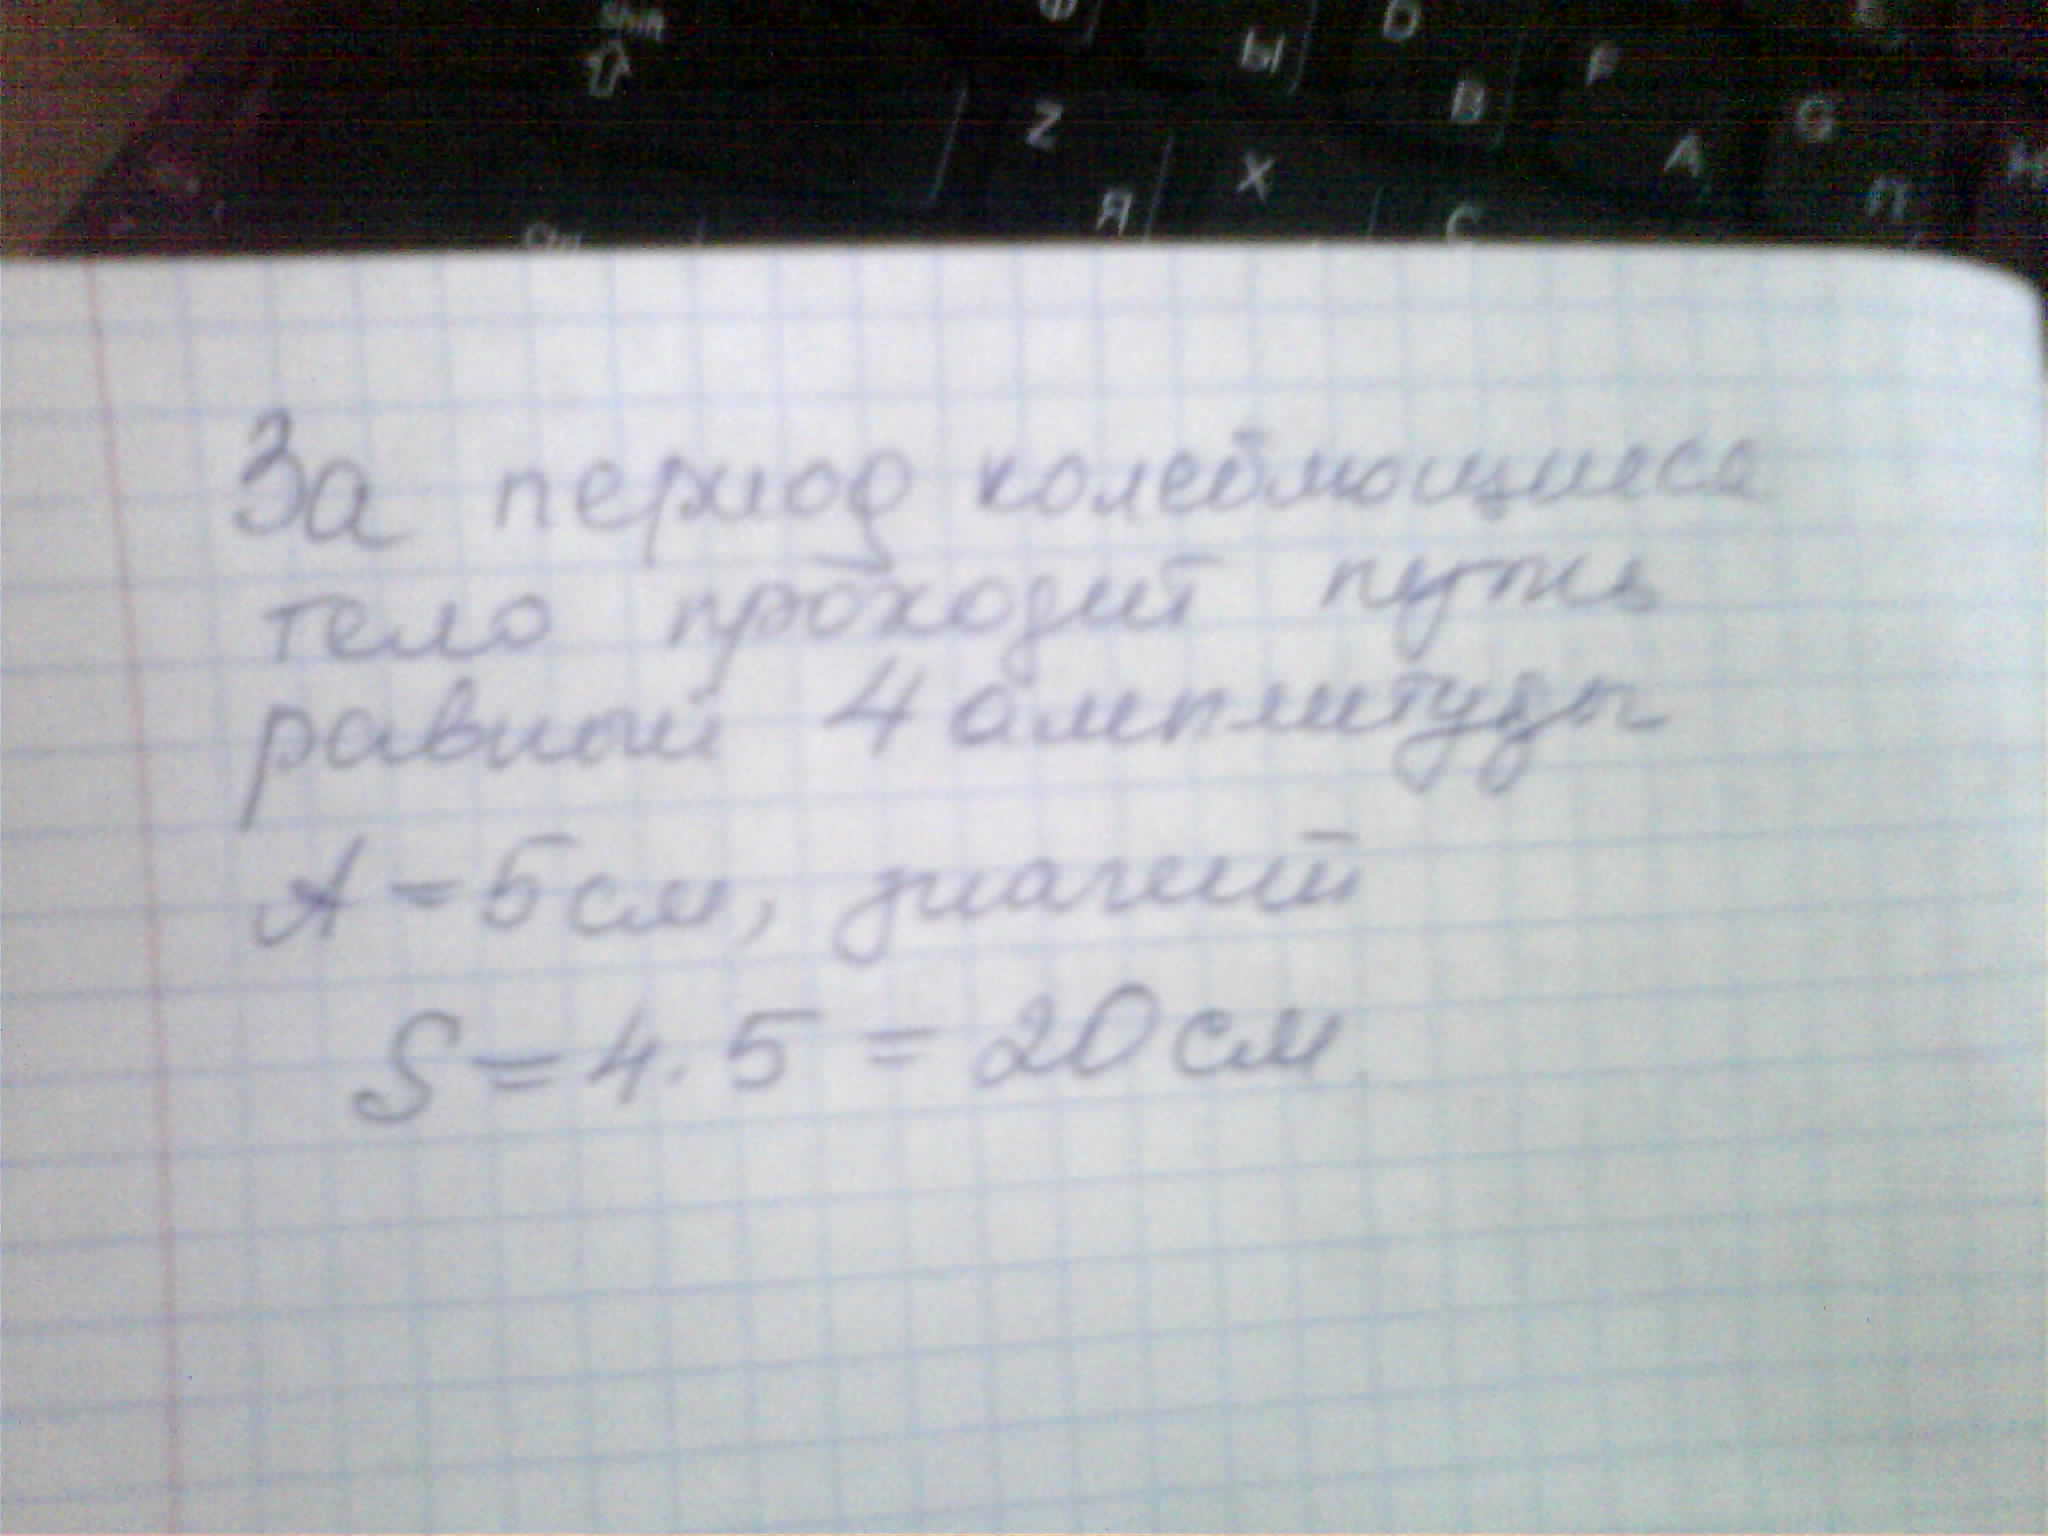 Shift
Ф
Ы
D
Z
В
F
Я
X
А
G
С
П
Ctrl
За период колеблющиеся
тело проходит путь
равный 4 амплитуды
A = 5 см, значит
S = 4 · 5 = 20 см